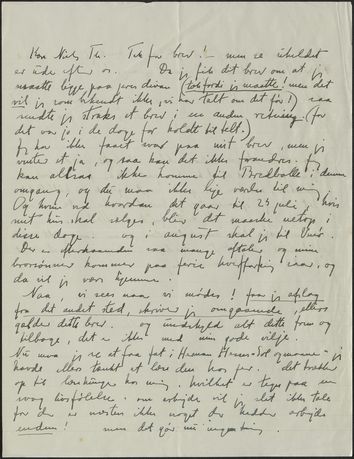 Kære Niels Th. Tak for brev! — men se uheldet
er ude efter os. Da jeg fik det brev om at jeg
maatte ligge paa jeres divan (tak fordi jeg maatte! men det
vil jeg som bekendt ikke, vi har talt om det før!) saa
sendte jeg straks et brev i en anden retning (for
det var jo i de dage for holdt
Jeg har ikke faaet svar paa mit brev, men jeg
venter et ja, og saa kan det ikke forandres. Jeg
kan altsaa ikke komme til Bredbølle i denne
omgang, og du maa ikke lige vorden til mig.
Og hvem ved hvordan det gaar til 25 juli, hvis
mit hus skal sælges, bliver det maaske netop i
disse dage — og i august skal jeg til
Der er efterhaanden saa mange aftaler og mine
brorsønner kommer paa ferie i aar, og
da vil jeg være hjemme.
Naa, vi sees naar vi mødes! Faar jeg afslag
fra det andet sted, skriver jeg omgaaende, ellers
gælder dette brev. Og undskyld alt dette frem og
tilbage, det er ikke med min gode vilje.
Nu maa jeg se at faa fat i Herman
havde ellers tænkt at læse den hos jer. Det trækker
op til hos mig, hvilket er tegn paa en
svag livsfølelse. Om arbejde vil jeg slet ikke tale
for der er næsten ikke noget der hedder arbejde
endnu! men det gør nu ingenting.